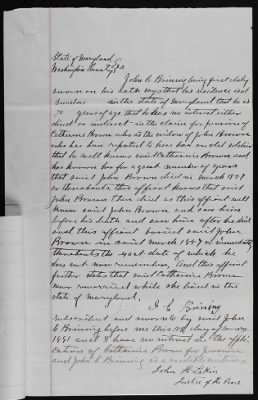 State of Maryland
Washington County
John C Brining being first duly
sworn on his oath says that his residence is at
in the state of Maryland that he is
70 years of age that he has no interest either
direct or indirect in the claim for pension of
Catharine Brown who is the widow of John Brown
who has been reported to have been an old soldier
that he well knows said Catharine Brown and
has known her for a great number of years
that said John Brown died in March 1857
or thereabouts this affiant knows that said
John Brown then died as this affiant well
knew said John Brown and saw him
before his death and saw him after he died
and this affiant buried said John
Brown in said March 1857 or immediately
thereabouts the exact date of which he
does not now remember. And this affiant
further states that said Catharine Brown
never remarried while she lived in the
state of Maryland.
J. C. Brining
Subscribed and sworn to by said John
C Brining before me this day of January
1881 and I have no interest in the appli
cation of Catharine Brown for pension
and John C Brining is a credible witness
John H
Justice of the Peace